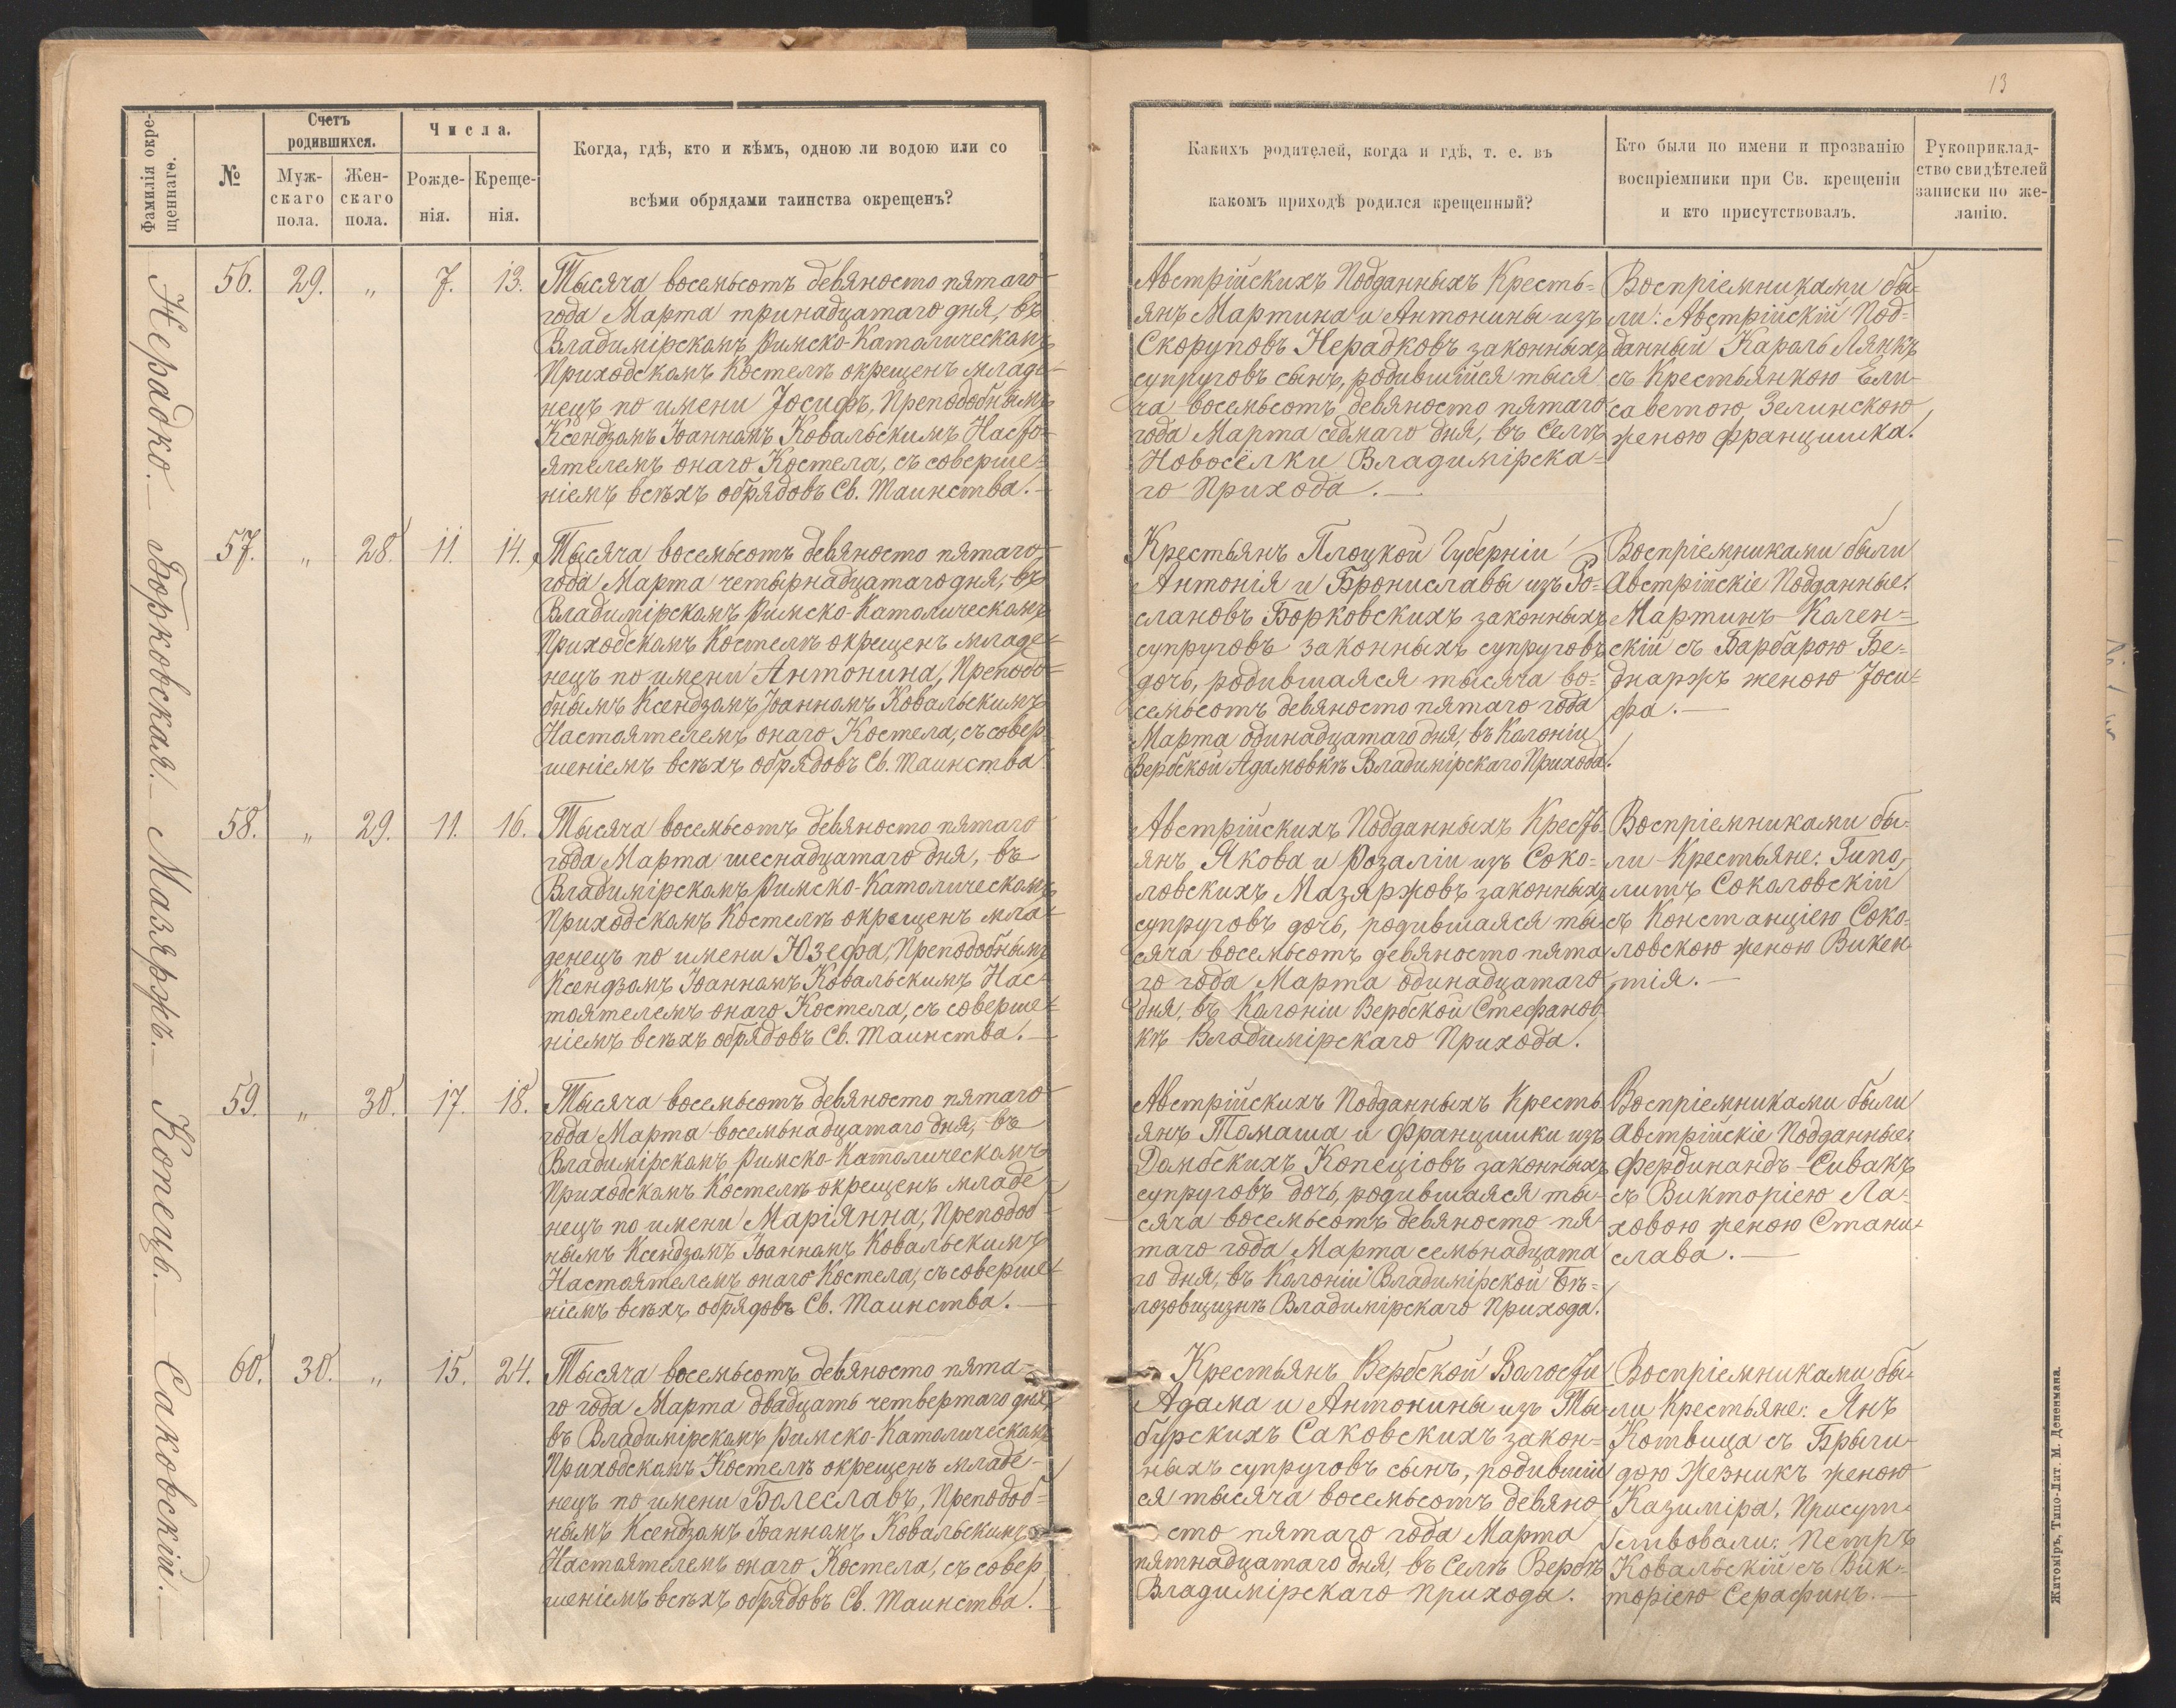 13
Фамилія окре-
щеннаго.
№
Счетъ
родившихся.
Муж-
скаго
пола.
Жен-
скаго
пола.
Числа.
Рожде-
нія.
Креще-
нія.
Когда, гдѣ, кто и кѣмъ, одною ли водою или со
всѣми обрядами таинства окрещенъ?
Какихъ родителей, когда и гдѣ, т. е. въ
какомъ приходѣ родился крещенный?
Кто были по имени и прозванію
воспріемники при Св. крещеніи
и кто присутствовалъ.
Рукоприклад-
ство свидѣтелей
записки по же-
ланію.
Нерадко.
56. 29. „ 7. 13.
Тысяча восемьсотъ девяносто пятаго
года Марта тринадцатаго дня, въ
Владимірскомъ Римско-Католическомъ
Приходскомъ Костелѣ окрещенъ младе-
нецъ по имени Іосифъ, Преподобнымъ
Ксендзомъ Іоанномъ Ковальскимъ Насто-
ятелемъ онаго Костела, съ соверше-
ніемъ всѣхъ обрядовъ Св. Таинства.
Австрійскихъ Подданныхъ Кресть-
янъ Мартина и Антонины изъ
Скоруповъ Нерадковъ законныхъ
супруговъ сынъ, родившійся тыся
ча восемьсотъ девяносто пятаго
года Марта седмаго дня, въ Селѣ
Новосёлки Владимірска-
го Прихода.
Воспріемниками бы-
ли: Австрійскій Под-
данный Кароль Лянкъ
съ Крестьянкою Ели-
саветою Зелинскою
женою Францишка.
Борковская.
57. „ 28. 11. 14.
Тысяча восемьсотъ девяносто пятаго
года Марта четырнадцатаго дня, въ
Владимірскомъ Римско-Католическомъ
Приходскомъ Костелѣ окрещенъ младе-
нецъ по имени Антонина, Преподо-
бнымъ Ксендзомъ Іоанномъ Ковальскимъ
Настоятелемъ онаго Костела, съ совер
шеніемъ всѣхъ обрядовъ Св. Таинства
Крестьянъ Плоцкой Губерніи
Антонія и Брониславы изъ Ро-
слановъ Борковскихъ законныхъ
супруговъ законныхъ супруговъ
дочь, родившаяся тысяча во-
семьсотъ девяносто пятаго года
Марта одинадцатаго дня, въ Колоніи
Вербской Адамовкѣ Владимірскаго Прихода.
Воспріемниками были
Австрійскіе Подданные:
Мартинъ Кален-
скій съ Барбарою Бе-
днаржъ женою Іоси-
фа.
Мазяржъ.
58. „ 29. 11. 16.
Тысяча восемьсотъ девяносто пятаго
года Марта шеснадцатаго дня, въ
Владимірскомъ Римско-Католическомъ
Приходскомъ Костелѣ окрещенъ мла-
денецъ по имени Юзефа, Преподобнымъ
Ксендзомъ Іоанномъ Ковальскимъ Нас-
тоятелемъ онаго Костела, съ соверше-
ніемъ всѣхъ обрядовъ Св. Таинства.
Австрійскихъ Подданныхъ Кресть-
янъ Якова и Розаліи изъ Соко-
ловскихъ Мазяржовъ законныхъ
супруговъ дочь, родившаяся ты-
сяча восемьсотъ девяносто пята
го года Марта одинадцатаго
дня, въ Колоніи Вербской Стефанов
кѣ Владимірскаго Прихода.
Воспріемниками бы-
ли Крестьяне: Гипо-
литъ Соколовскій
съ Констанціею Соко-
ловскою женою Викен
тія.
Копець.
59. „ 30. 17. 18.
Тысяча восемьсотъ девяносто пятаго
года Марта восемьнадцатаго дня, въ
Владимірскомъ Римско-Католическомъ
Приходскомъ Костелѣ окрещенъ младе
нецъ по имени Маріянна, Преподоб
нымъ Ксендзомъ Іоанномъ Ковальскимъ
Настоятелемъ онаго Костела, съ соверше-
ніемъ всѣхъ обрядовъ Св. Таинства.
Австрійскихъ Подданныхъ Кресть
янъ Томаша и Францишки изъ
Домбскихъ Копеціовъ законныхъ
супруговъ дочь, родившаяся ты-
сяча восемьсотъ девяносто пя-
таго года Марта семьнадцата
го дня, въ Колоніи Владимірской Бѣ-
лозовщизнѣ Владимірскаго Прихода.
Воспріемниками были
Австрійскіе Подданные:
Фердинандъ Сивакъ
съ Викторіею Ла-
ховою женою Стани-
слава.
Саковскій.
60. 30. „ 15. 24.
Тысяча восемьсотъ девяносто пята-
го года Марта двадцать четвертаго дня,
въ Владимірскомъ Римско-Католическомъ
Приходскомъ Костелѣ окрещенъ младе-
нецъ по имени Болеславъ, Преподоб-
нымъ Ксендзомъ Іоанномъ Ковальскимъ
Настоятелемъ онаго Костела, съ совер
шеніемъ всѣхъ обрядовъ Св. Таинства.
Крестьянъ Вербской Волости
Адама и Антонины изъ Ты-
бурскихъ Саковскихъ закон-
ныхъ супруговъ сынъ, родившій
ся тысяча восемьсотъ девяно
сто пятаго года Марта
пятнадцатаго дня, въ Селѣ Вербѣ
Владимірскаго прихода.
Воспріемниками бы-
ли Крестьяне: Янъ
Котвица съ Брыги-
дою Жезникъ женою
Казиміра. Присут-
ствовали: Петръ
Ковальскій съ Вик-
торіею Серафинъ.
Житоміръ, Типо-Лит. М. Дененмана.